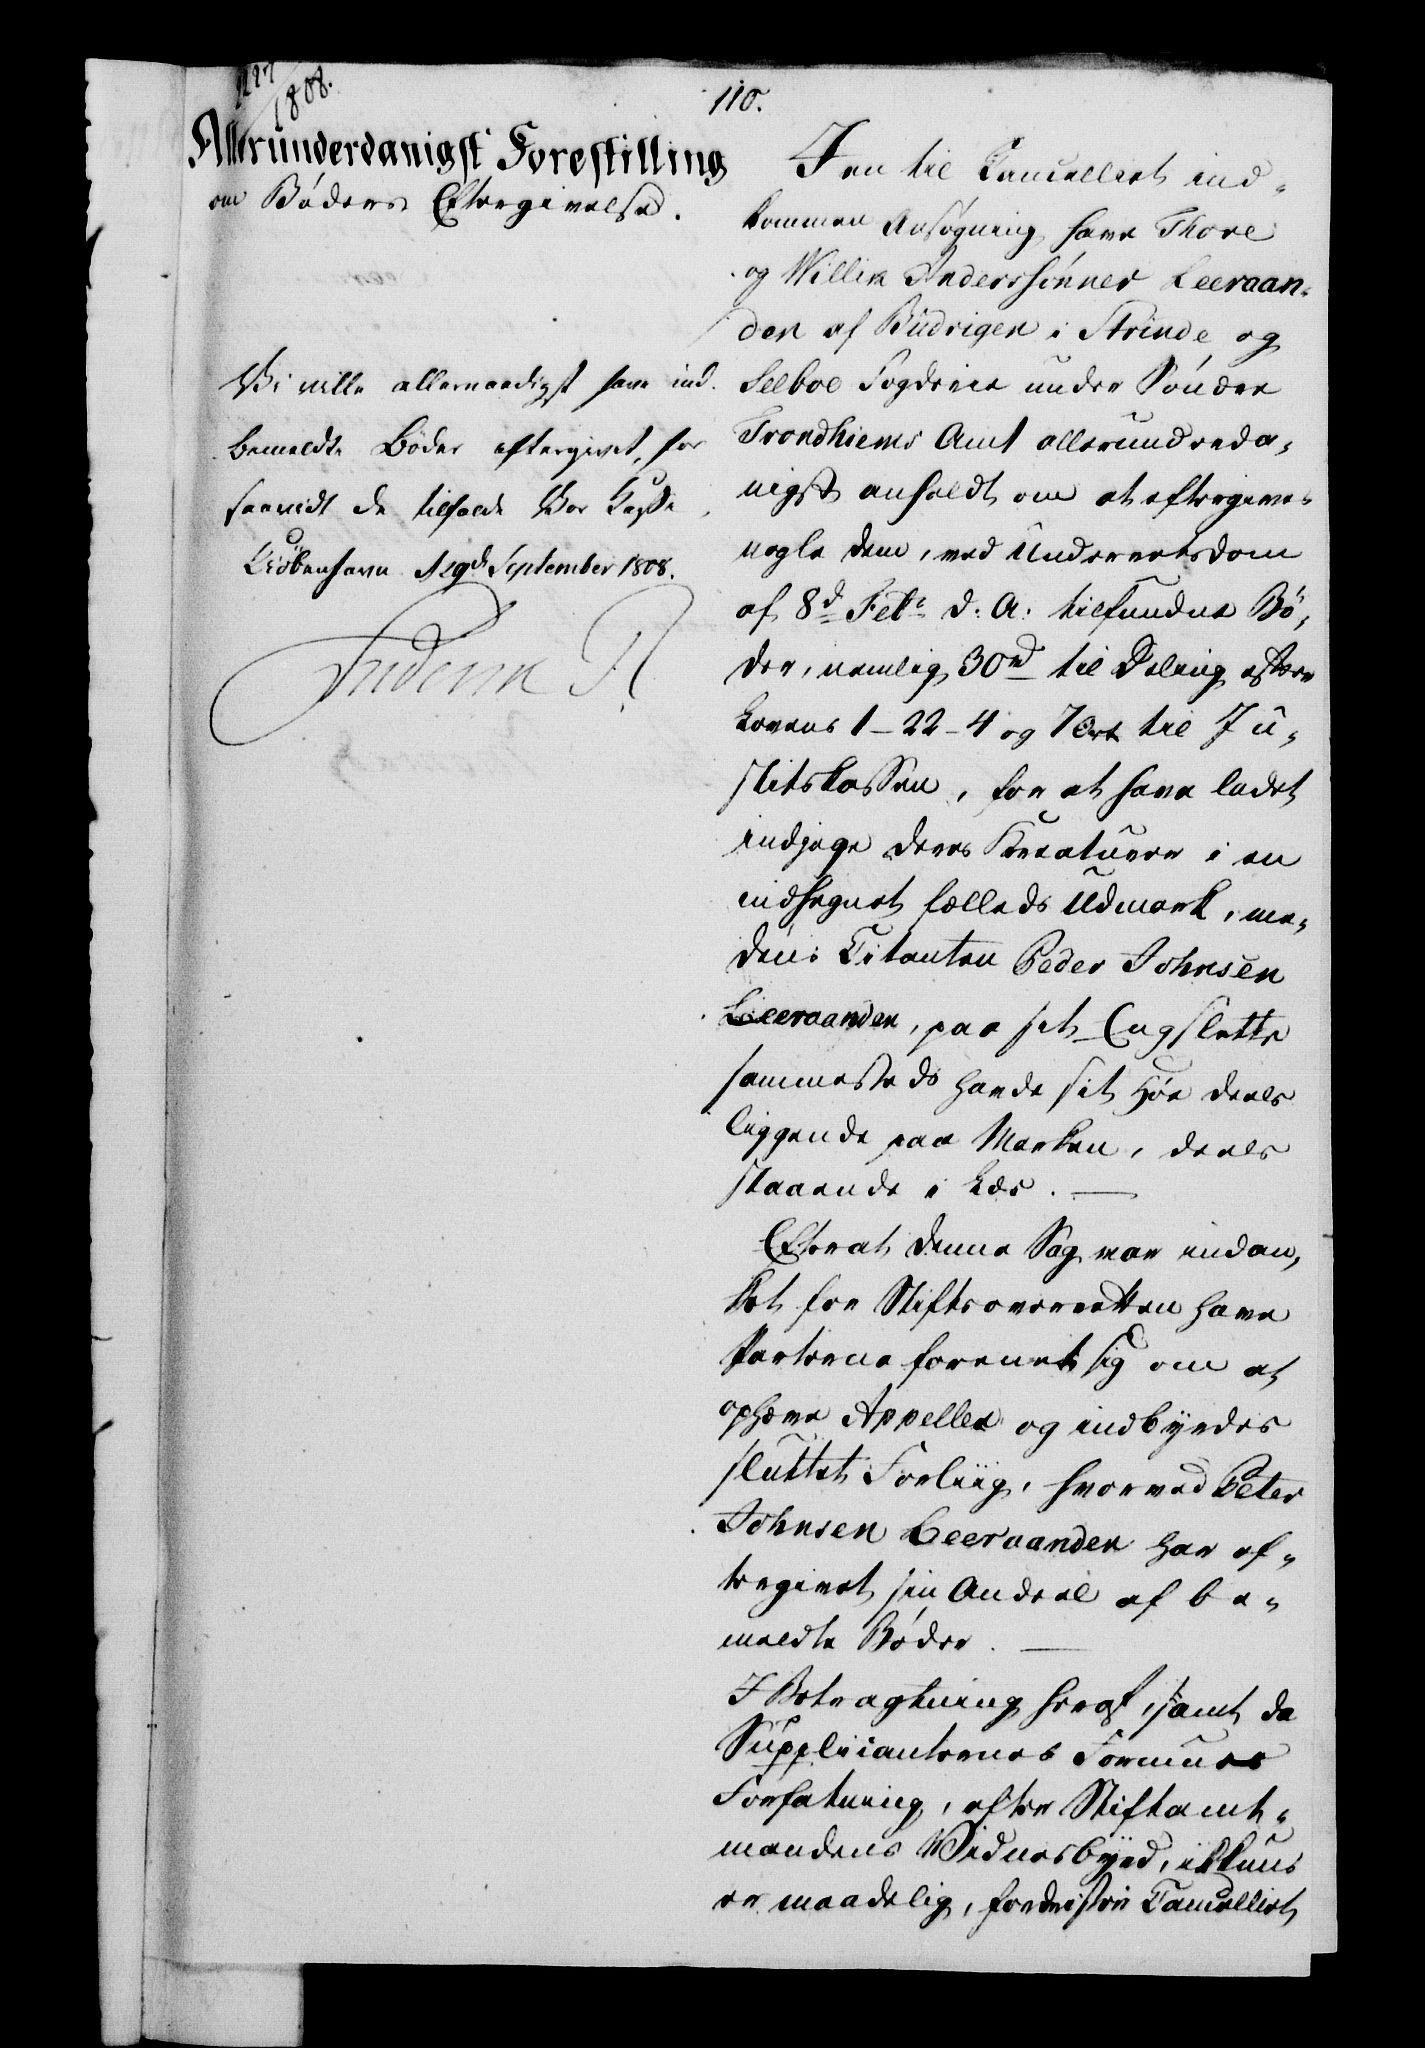 1227/1808.
110.
Allerunderdanigst Forestilling
om Böders Eftergivelse.
Vi ville allernaadigst have ind-
bemeldte Böder eftergivet, for
saavidt de tilfalde Vor Kasse.
Kiöbenhavn September 1808.
Friderik R
I en til Cancelliet ind-
kommen Ansögning have Thore
og Willik Anderssönner Leeraan-
den af Büdrigen i Strinde og
Selboe Fogderie under Söndre
Trondhiems Amt allerundreda-
nigst anholdt om at eftergive-
nogle dem, ved Underretsdom
af 8d Febr d: A: tilfundne Bö-
der, nemlig 30 rd til Deling efter
Lovens 1-22-4 og 7 Ort til Ju-
stitskassen, for at have ladet
indjage deres Kreaturer i en
indhegnet fælleds Udmark, me-
dens Citanten Peder Johnsen
Leeraanden, paa sit Engslette
sammesteds havde sit Höe deels
liggende paa Marken, deels
staaende i Læs. —
Efterat denne Sag var indan-
ket for Stiftsoverretten have
Parterne forenet sig om at
ophæve Appellen og indbyrdes
sluttet Forliig, hvorved Peter
Johnsen Leeraanden har ef-
tergivet sin Andeel af be-
meldte Böder. —
I Betragtning heraf, samt da
Suppliianternes Formues
Forfatning, efter Stiftamt-
mandens Vidnesbyrd, ikkuns
er maadelig, Cancelliet